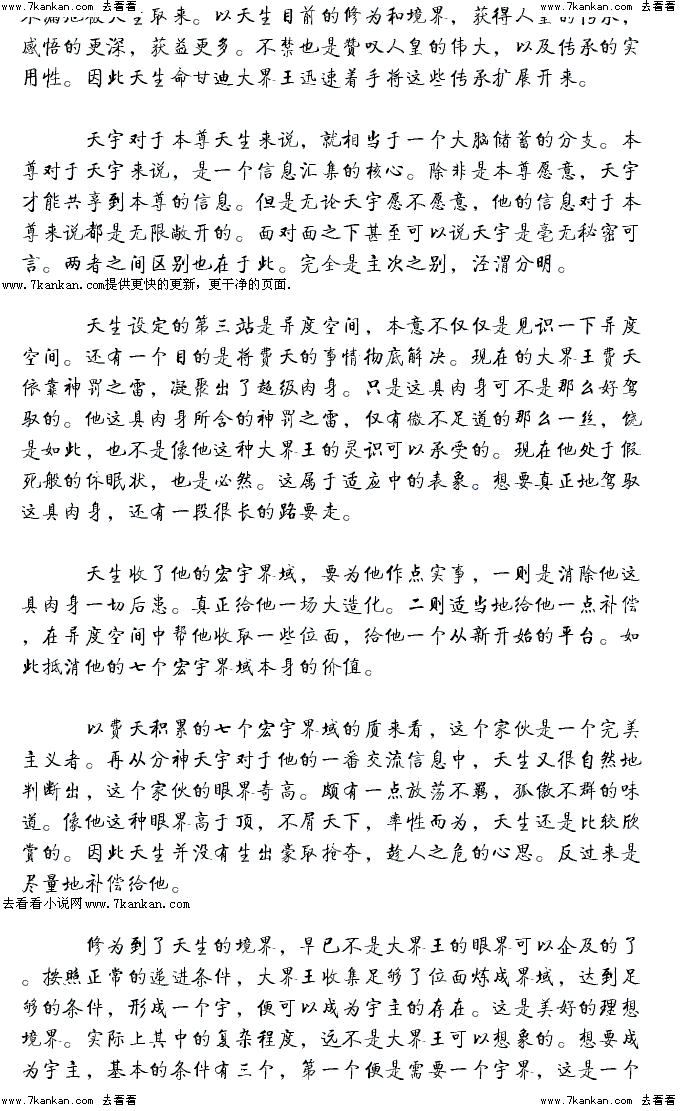 www.7kankan.com 去看看 www.7kankan.com 去看看 www.7kankan.com 去看看
被天生取来。以天生目前的修为和境界，获得人皇的传承，
感悟的更深，获益更多。不禁也是赞叹人皇的伟大，以及传承的实
用性。因此天生命甘迪大界王迅速着手将这些传承扩展开来。
天宇对于本尊天生来说，就相当于一个大脑储蓄的分支。本
尊对于天宇来说，是一个信息汇集的核心。除非是本尊愿意，天宇
才能共享到本尊的信息。但是无论天宇愿不愿意，他的信息对于本
尊来说都是无限敞开的。面对面之下甚至可以说天宇是毫无秘密可
言。两者之间区别也在于此。完全是主次之别，泾渭分明。
www.7kankan.com提供更快的更新，更干净的页面.
天生设定的第三站是异度空间，本意不仅仅是见识一下异度
空间。还有一个目的是将费天的事情彻底解决。现在的大界王费天
依靠神罚之雷，凝聚出了超级肉身。只是这具肉身可不是那么好驾
驭的。他这具肉身所含的神罚之雷，仅有微不足道的那么一丝，饶
是如此，也不是像他这种大界王的灵识可以承受的。现在他处于假
死般的休眠状，也是必然。这属于适应中的表象。想要真正地驾驭
这具肉身，还有一段很长的路要走。
天生收了他的宏宇界域，要为他作点实事，一则是消除他这
具肉身一切后患。真正给他一场大造化。二则适当地给他一点补偿
，在异度空间中帮他收取一些位面，给他一个从新开始的平台。如
此抵消他的七个宏宇界域本身的价值。
以费天积累的七个宏宇界域的质来看，这个家伙是一个完美
主义者。再从分神天宇对于他的一番交流信息中，天生又很自然地
判断出，这个家伙的眼界奇高。颇有一点放荡不羁，孤傲不群的味
道。像他这种眼界高于顶，不屑天下，率性而为，天生还是比较欣
赏的。因此天生并没有生出豪取抢夺，趁人之危的心思。反过来是
尽量地补偿给他。
去看看小说网www.7kankan.com
修为到了天生的境界，早已不是大界王的眼界可以企及的了
。按照正常的递进条件，大界王收集足够了位面炼成界域，达到足
够的条件，形成一个宇，便可以成为宇主的存在。这是美好的理想
境界。实际上其中的复杂程度，远不是大界王可以想象的。想要成
为宇主，基本的条件有三个，第一个便是需要一个宇界，这是一个
www.7kankan.com 去看看 www.7kankan.com 去看看 www.7kankan.com 去看看